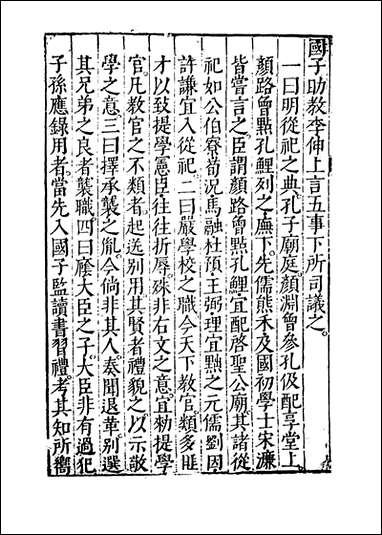 國子助教李伸上言五事下所司議之
一曰明從祀之典孔子廟庭顏淵曾參孔伋配享堂上
顏路曾點孔鯉列之廡下先儒熊禾及國初學士宋濂
皆嘗言之臣謂顏路曾點孔鯉宜配啓聖公廟其諸從
祀如公伯寮荀况馬融杜預王弼理宜黜之元儒劉因
許謙宜入從祀二曰嚴學校之職今天下教官類多匪
才以致提學憲臣往往折辱殊非右文之意宜勑提學
官凡教官之不類者起送别用其賢者禮貌之以示敬
學之意三曰擇承襲之胤今倘非其人奏聞退革别選
其兄弟之良者襲職四曰廕大臣之子大臣非有過犯
子孫應錄用者當先入國子監讀書習禮考其知所嚮